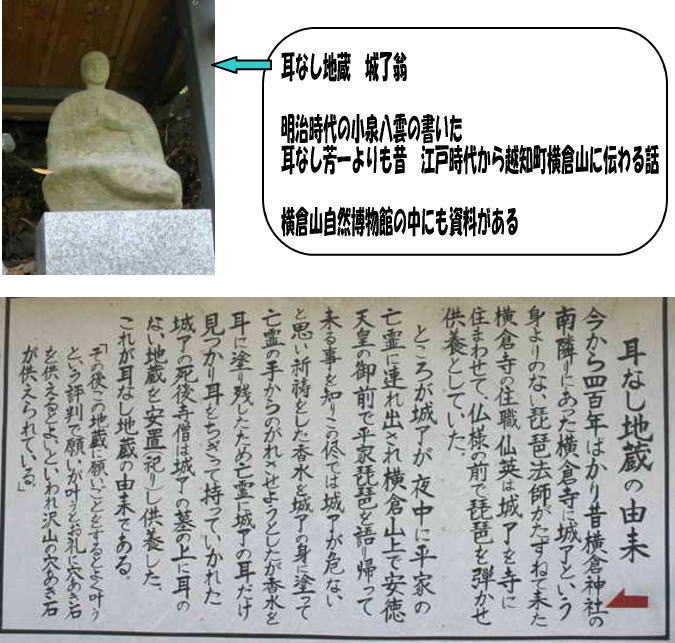 耳なし地蔵　城了翁
明治時代の小泉八雲の書いた
耳なし芳一よりも昔　江戸時代から越知町横倉山に伝わる話
横倉山自然博物館の中にも資料がある
耳なし地蔵の由来
今から四百年ばかり昔横倉神社の
南隣りにあった横倉寺に城了という
身よりのない琵琶法師がたずねて来た
横倉寺の住職仙英は城了を寺に
住まわせて、仏様の前で琵琶を弾かせ
供養としていた。
ところが城了が夜中に平家の
亡霊に連れ出され横倉山上で安徳
天皇の御前で平家琵琶を語り帰って
来る事を知りこの侭では城了が危ない
と思い祈祷をした香水を城了の身に塗って
亡霊の手からのがれさせようとしたが香水を
耳に塗り残したため亡霊に城了の耳だけ
見つかり耳をちぎって持っていかれた
城了の死後寺僧は城了の墓の上に耳の
ない地蔵を安置(祀り)し供養した。
これが耳なし地蔵の由来である。
「その後この地蔵に願いごとをするとよく叶う
という評判で願いが叶うとお礼に穴あき石
を供えるとよいといわれ沢山の穴あき石
が供えられている。」